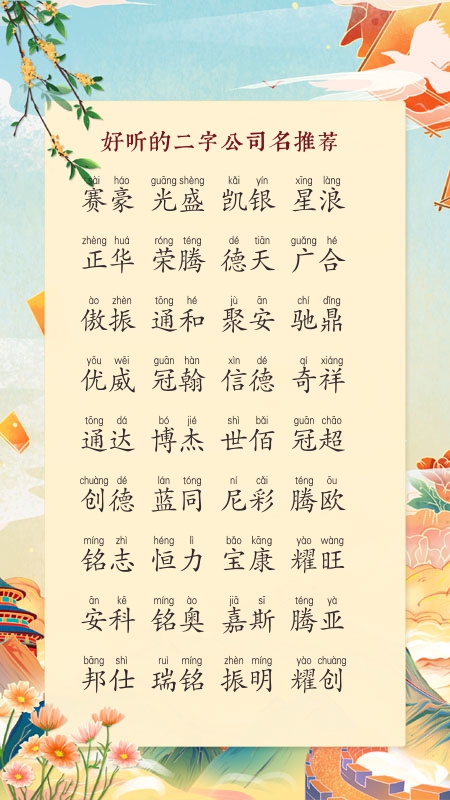 好听的二字公司名推荐
sài háo guāng shèng kǎi yín xīng làng
赛豪 光盛 凯银 星浪
zhèng huá róng téng dé tiān guǎng hé
正华 荣腾 德天 广合
ào zhèn tōng hé jù ān chí dǐng
傲振 通和 聚安 驰鼎
yōu wēi guān hàn xìn dé qí xiáng
优威 冠翰 信德 奇祥
tōng dá bó jié shì bǎi guān chāo
通达 博杰 世佰 冠超
chuàng dé lán tóng ní cǎi téng ōu
创德 蓝同 尼彩 腾欧
míng zhì héng lì bǎo kāng yào wàng
铭志 恒力 宝康 耀旺
ān kē míng ào jiā sī téng yà
安科 铭奥 嘉斯 腾亚
bāng shì ruì míng zhèn míng yào chuàng
邦仕 瑞铭 振明 耀创